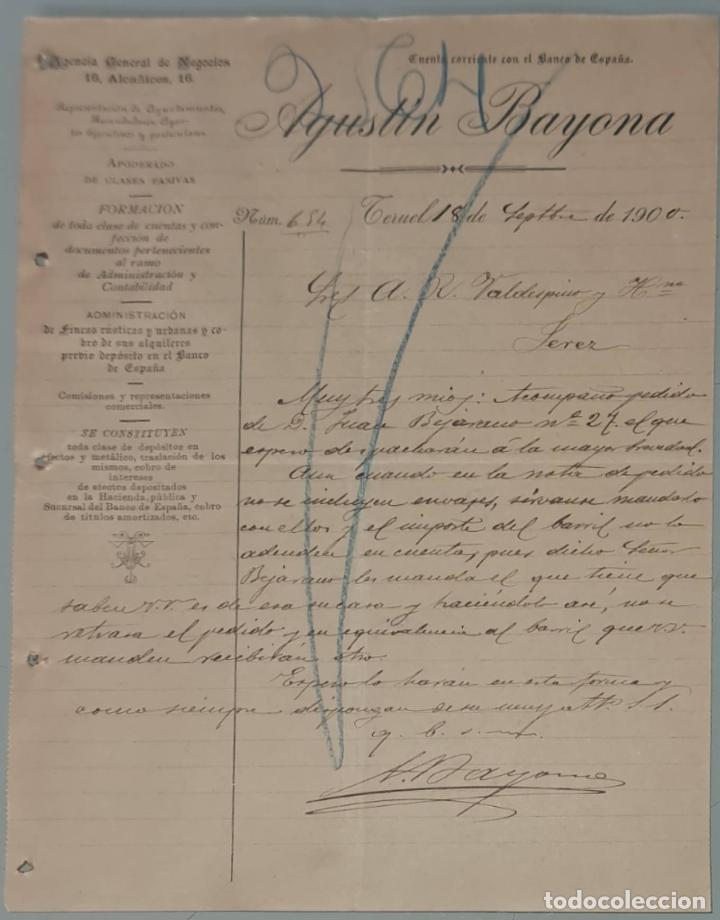 Agencia General de Negocios
16, Alcañices, 16.
Representación de Ayuntamientos,
Recaudadores, Agen-
tes Ejecutivos y particulares.
APODERADO
DE CLASES PASIVAS
FORMACION
de toda clase de cuentas y con-
fección de
documentos pertenecientes
al ramo
de Administración y
Contabilidad
ADMINISTRACIÓN
de Fincas rústicas y urbanas y co-
bro de sus alquileres
previo depósito en el Banco
de España
Comisiones y representaciones
comerciales.
SE CONSTITUYEN
toda clase de depósitos en
efectos y metálico, traslación de los
mismos, cobro de
intereses
de efectos depositados
en la Hacienda, pública y
Sucursal del Banco de España, cobro
de títulos amortizados, etc.
Cuenta corriente con el Banco de España.
Agustín Bayona
Núm. 654 Teruel 18 de Septbre de 1900.
Sres A. R. Valdespino y Hno
Jerez
Muy Sres mios: Acompaño pedido
de D. Juan Bejarano nº 27 el que
espero despacharán á la mayor brevedad.
Aun cuando en la nota de pedido
no se incluyen envases, sirvanse mandarlo
con ellos y el importe del barril no lo
adeuden en cuenta, pues dicho Señor
Bejarano les manda el que tiene que
saben V.V. es de esa su casa y haciéndolo asi, no se
retrasa el pedido y en equivalencia al barril que V.V.
manden recibirán otro.
Espero lo harán en esta forma y
como siempre dispongan de su muy att. S. S.
q. b. s. m.
A. Bayona
todocoleccion.net